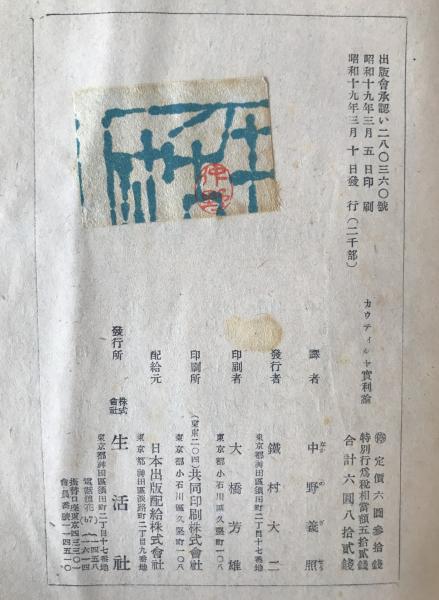 出版會承認い二八〇三六〇號
昭和十九年三月五日印刷
昭和十九年三月十日發行(二千部)
カウティルヤ實利論
㊞ 定價六圓參拾錢
特別行爲稅相當額五拾貳錢
合計六圓八拾貳錢
譯者 中野義照
發行者 鐵村大二
東京都神田區須田町二丁目十七番地
印刷者 大橋芳雄
東京都小石川區久堅町一〇八
印刷所 (東東二〇四)共同印刷株式會社
東京都小石川區久堅町一〇八
配給元 日本出版配給株式會社
東京都神田區淡路町二丁目九番地
發行所 株式會社 生活社
東京都神田區須田町二丁目十七番地